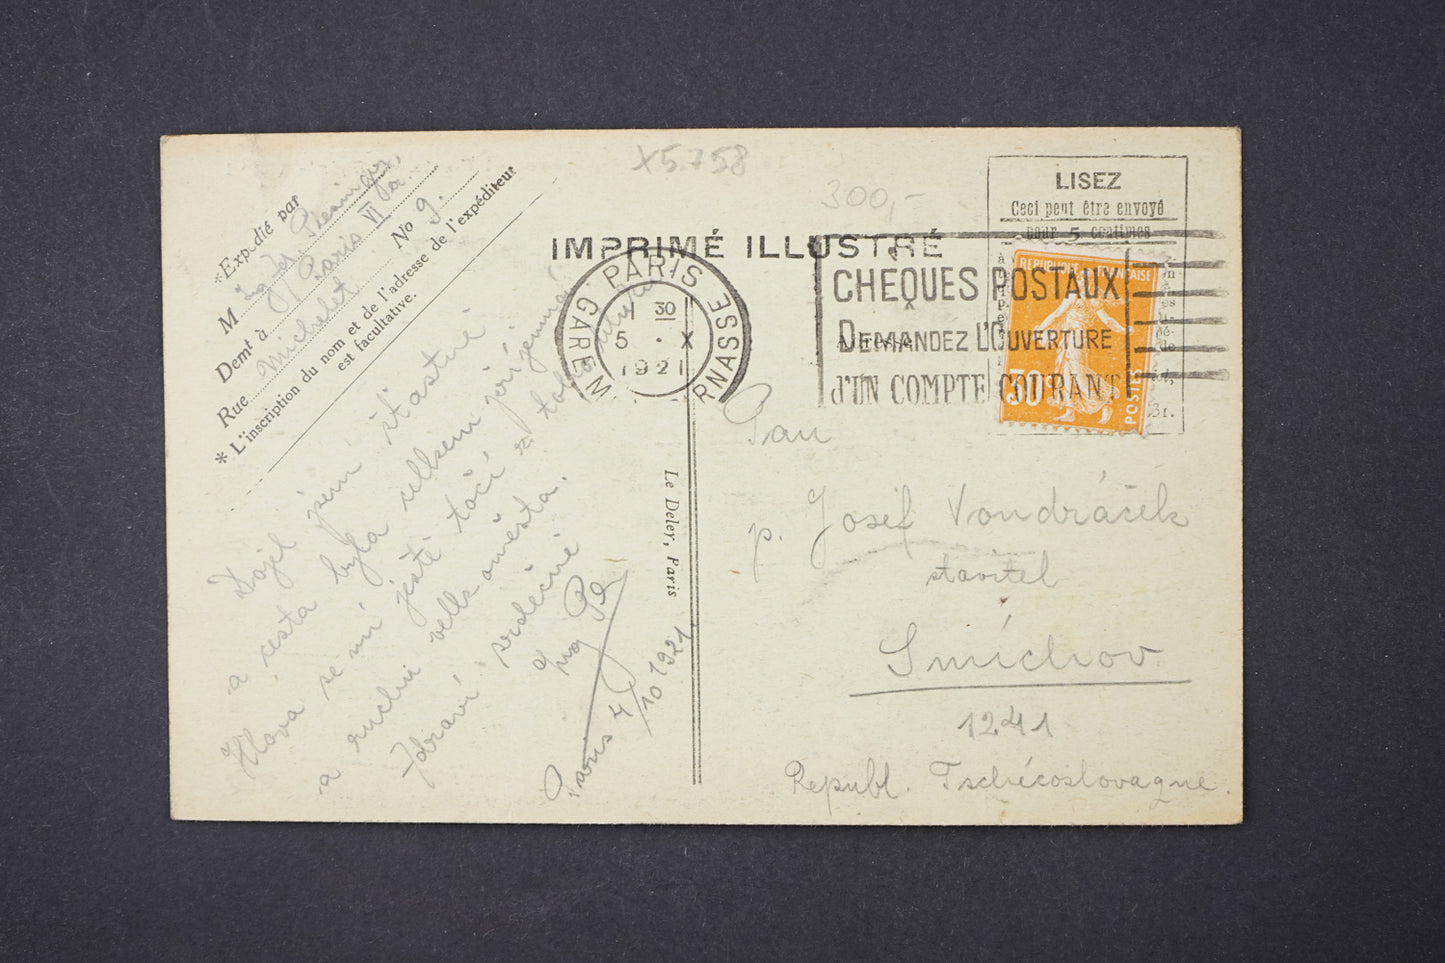 X5.758
300,-
*Expédié par
M Ig. Preininger,
Demt à Paris VI
Rue Michelet No 9.
* L'inscription du nom et de l'adresse de l'expéditeur
est facultative.
IMPRIMÉ ILLUSTRÉ
LISEZ
Ceci peut être envoyé
pour 5 centimes
REPUBLIQUE FRANÇAISE
30c
POSTES
PARIS GARE MONTPARNASSE
1 30
5 . X
1921
CHEQUES POSTAUX
DEMANDEZ L'OUVERTURE
d'UN COMPTE COURANT
Dojel jsem šťastně
a cesta byla celkem
Hlava se mi ještě točí z toho
a ruchu velkoměsta.
Zdraví srdečně
Paris 4/10 1921
Le Deley, Paris
Pan
p. Josef Vondráček
stavitel
Smíchov
1241
Republ. Tschécoslovaque.